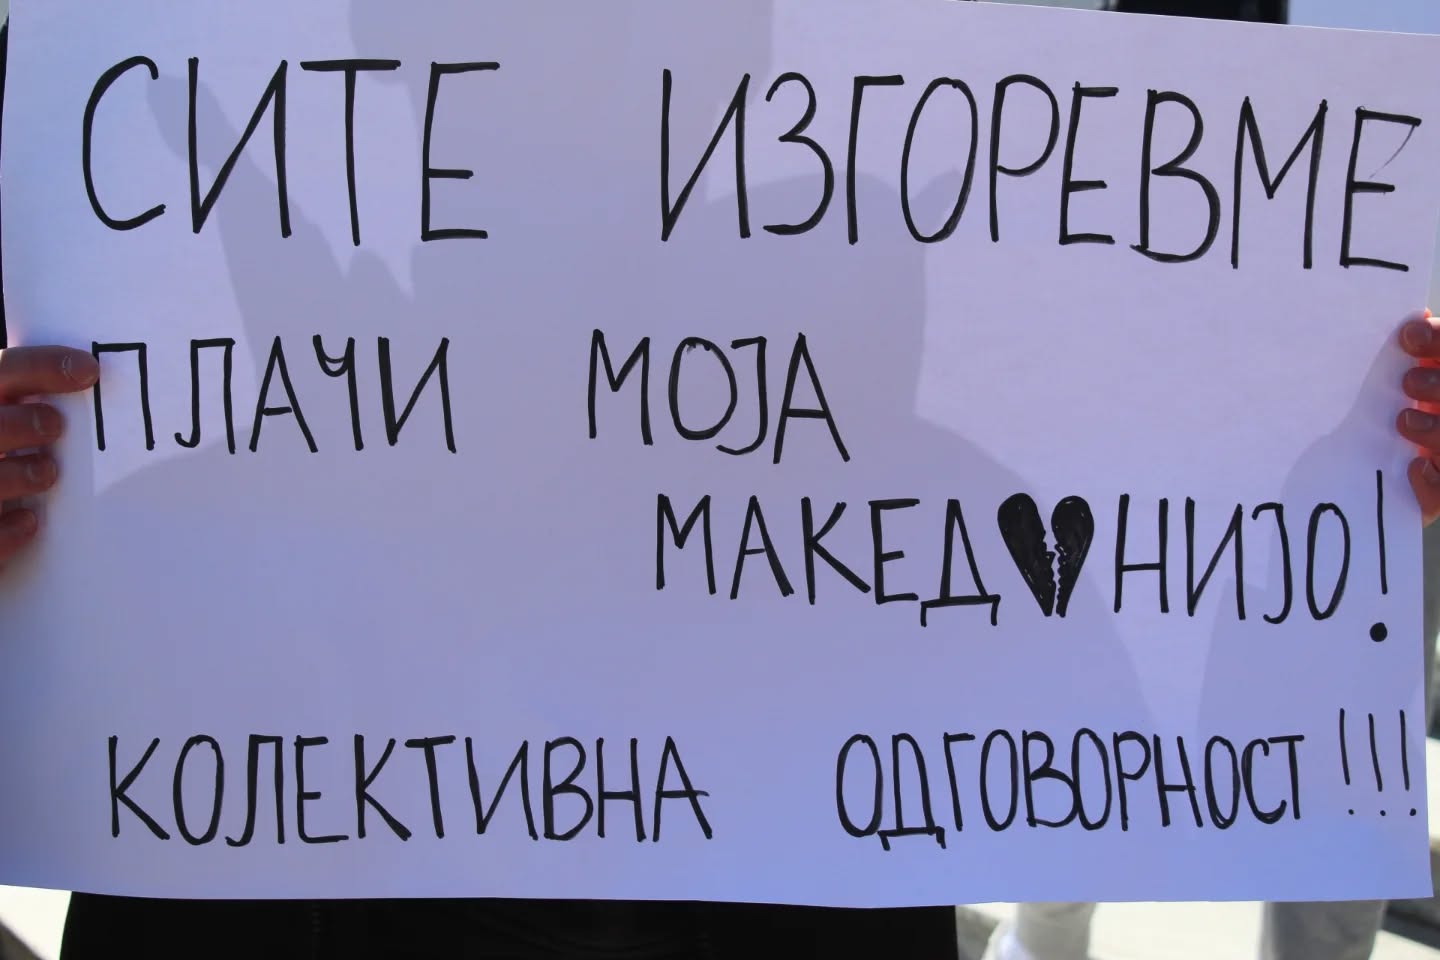 СИТЕ ИЗГОРЕВМЕ
ПЛАЧИ МОЈА
МАКЕД💔НИЈО!
КОЛЕКТИВНА ОДГОВОРНОСТ!!!